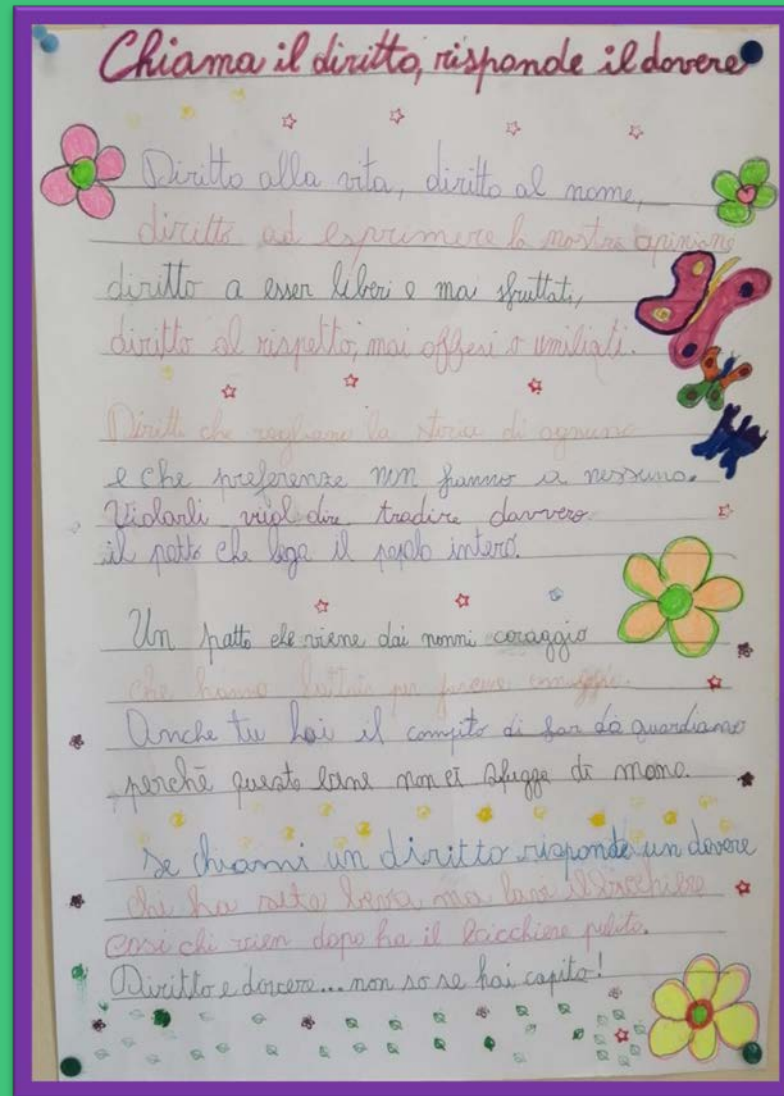 Chiama il diritto, risponde il dovere
Diritto alla vita, diritto al nome,
diritto ad esprimere la nostra opinione
diritto a esser liberi e mai sfruttati,
diritto al rispetto, mai offesi o umiliati.
Diritti che regolano la storia di ognuno
e che preferenze non fanno a nessuno.
Violarli vuol dire tradire davvero
il patto che lega il popolo intero.
Un patto che viene dai nonni coraggio
che hanno lottato per farcene omaggio.
Anche tu hai il compito di far da guardiano
perchè questo bene non ci sfugga di mano.
Se chiami un diritto risponde un dovere
chi ha sete beva ma lavi il bicchiere
così chi vien dopo ha il bicchiere pulito.
Diritto e dovere... non so se hai capito!